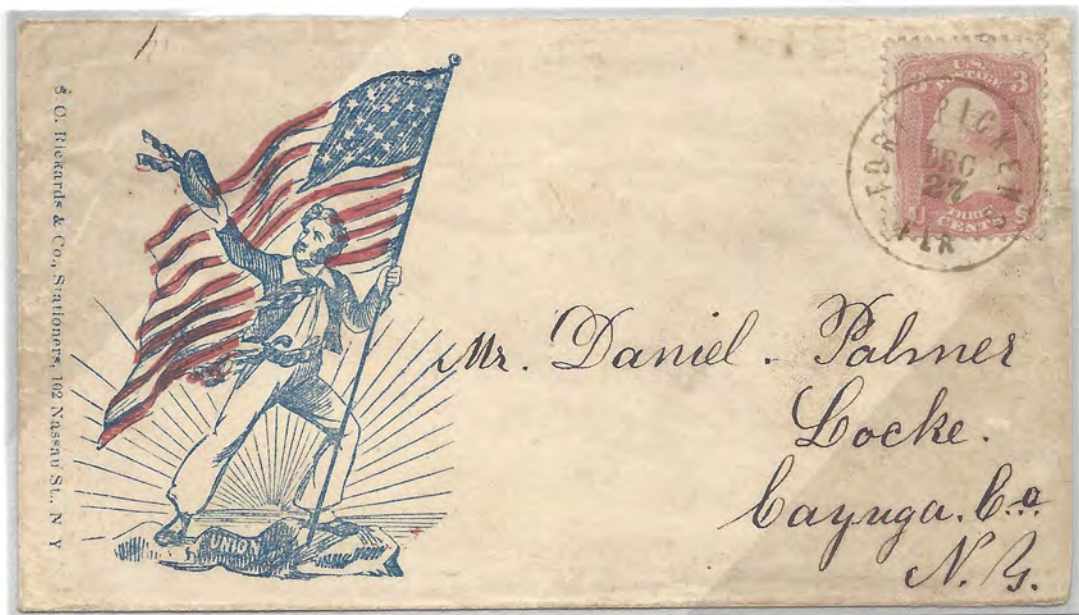 S. C. Rickards & Co., Stationers, 102 Nassau St., N Y
UNION
3 U.S. 3
POSTAGE
U THREE S
CENTS
FORT PICKENS
DEC
27
FLA
Mr. Daniel. Palmer
Locke.
Cayuga. Co.
N.Y.